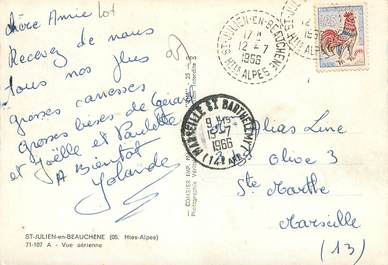 chère Annie Lot
Recevez de nous
tous nos plus
grosses caresses
Grosses bises de Gérard
et Joëlle et Paulette
A Bientôt
Yolande
ST-JULIEN-en-BEAUCHENE (05. Htes-Alpes)
71-107 A - Vue aérienne
ST-JULIEN-EN-BEAUCHENE
17 H
12-7
1966
Htes ALPES
MARSEILLE ST BARTHELEMY
9 H
13-7
1966
(14e ARR)
Line
Olive 3
Ste Marthe
Marseille
(13)